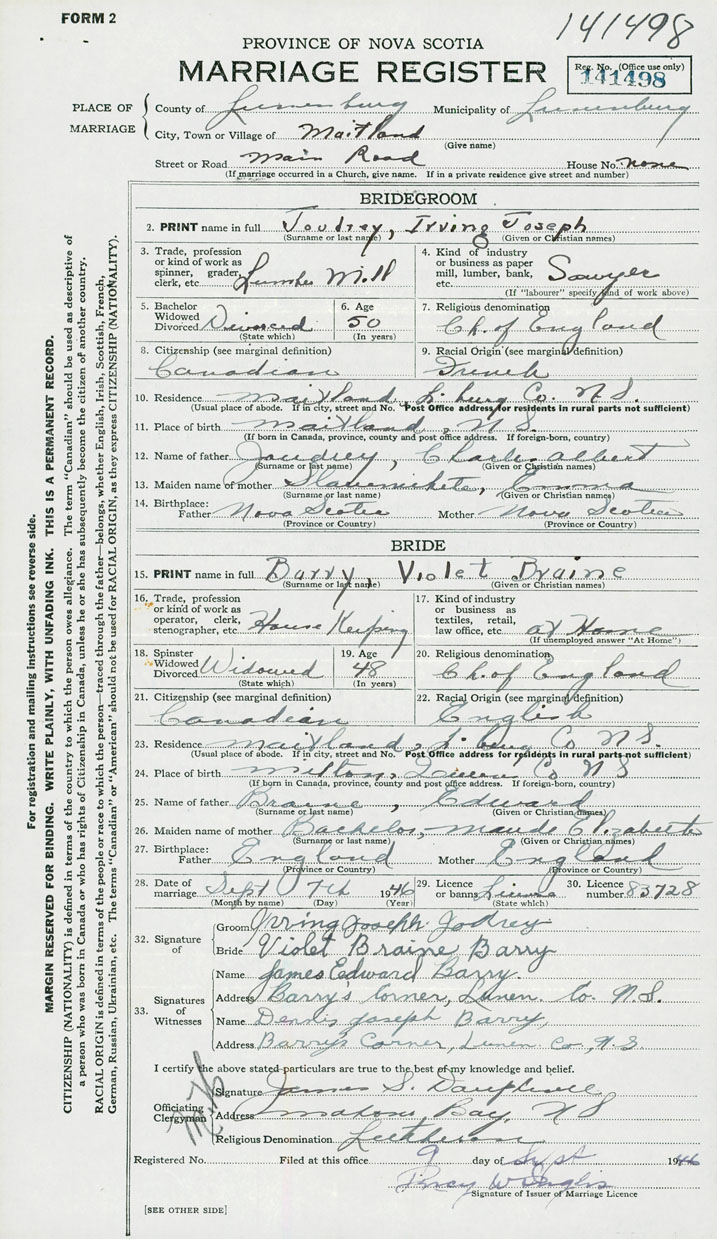 FORM 2
141498
PROVINCE OF NOVA SCOTIA
MARRIAGE REGISTER
Reg. No. (Office use only)
141498
PLACE OF MARRIAGE
County of Lunenburg Municipality of Lunenburg
City, Town or Village of Maitland
(Give name)
Street or Road Main Road House No. none
(If marriage occurred in a Church, give name. If in a private residence give street and number)
BRIDEGROOM
2. PRINT name in full Joudrey, Irving Joseph
(Surname or last name) (Given or Christian names)
3. Trade, profession or kind of work as spinner, grader, clerk, etc. Lumber Mill
4. Kind of industry or business as paper mill, lumber, bank, etc. Sawyer
(If "labourer" specify kind of work above)
5. Bachelor Widowed Divorced Divorced
(State which)
6. Age 50
(In years)
7. Religious denomination Ch. of England
8. Citizenship (see marginal definition) Canadian
9. Racial Origin (see marginal definition) French
10. Residence Maitland, L. burg Co. N.S.
(Usual place of abode. If in city, street and No. Post Office address for residents in rural parts not sufficient)
11. Place of birth Maitland, N.S.
(If born in Canada, province, county and post office address. If foreign-born, country)
12. Name of father Joudrey, Charles Albert
(Surname or last name) (Given or Christian names)
13. Maiden name of mother Emma
(Surname or last name) (Given or Christian names)
14. Birthplace: Father Nova Scotia Mother Nova Scotia
(Province or Country) (Province or Country)
BRIDE
15. PRINT name in full Barry, Violet Braine
(Surname or last name) (Given or Christian names)
16. Trade, profession or kind of work as operator, clerk, stenographer, etc. House Keeping
17. Kind of industry or business as textiles, retail, law office, etc. at Home
(If unemployed answer "At Home")
18. Spinster Widowed Divorced Widowed
(State which)
19. Age 48
(In years)
20. Religious denomination Ch. of England
21. Citizenship (see marginal definition) Canadian
22. Racial Origin (see marginal definition) English
23. Residence Maitland, L. burg Co N.S.
(Usual place of abode. If in city, street and No. Post Office address for residents in rural parts not sufficient)
24. Place of birth Milton, Queens Co N S
(If born in Canada, province, county and post office address. If foreign-born, country)
25. Name of father Braine, Edward
(Surname or last name) (Given or Christian names)
26. Maiden name of mother Bachelor, Maude Elizabeth
(Surname or last name) (Given or Christian names)
27. Birthplace: Father England Mother England
(Province or Country) (Province or Country)
28. Date of marriage Sept 7th 1946
(Month by name) (Day) (Year)
29. Licence or banns License
(State which)
30. Licence number 83728
32. Signature of
Groom Irving Joseph Jodrey
Bride Violet Braine Barry
33. Signatures of Witnesses
Name James Edward Barry.
Address Barry's Corner, Lunen. Co. N.S.
Name Denis Joseph Barry,
Address Barry's Corner, Lunen Co, N.S.
I certify the above stated particulars are true to the best of my knowledge and belief.
Officiating Clergyman
Signature James S. Dauphinee
Address Mahone Bay, N S
Religious Denomination Lutheran
Registered No. Filed at this office 9 day of Sept 1946
Signature of Issuer of Marriage Licence
[SEE OTHER SIDE]
For registration and mailing instructions see reverse side.
MARGIN RESERVED FOR BINDING. WRITE PLAINLY, WITH UNFADING INK. THIS IS A PERMANENT RECORD.
CITIZENSHIP (NATIONALITY) is defined in terms of the country to which the person owes allegiance. The term "Canadian" should be used as descriptive of
a person who was born in Canada or who has rights of Citizenship in Canada, unless he or she has subsequently become the citizen of another country.
RACIAL ORIGIN is defined in terms of the people or race to which the person—traced through the father—belongs, whether English, Irish, Scottish, French,
German, Russian, Ukrainian, etc. The terms "Canadian" or "American" should not be used for RACIAL ORIGIN, as they express CITIZENSHIP (NATIONALITY).